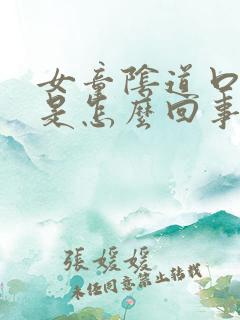 女童陰道口
是怎麼回事
張媛媛
未經同意禁止轉載